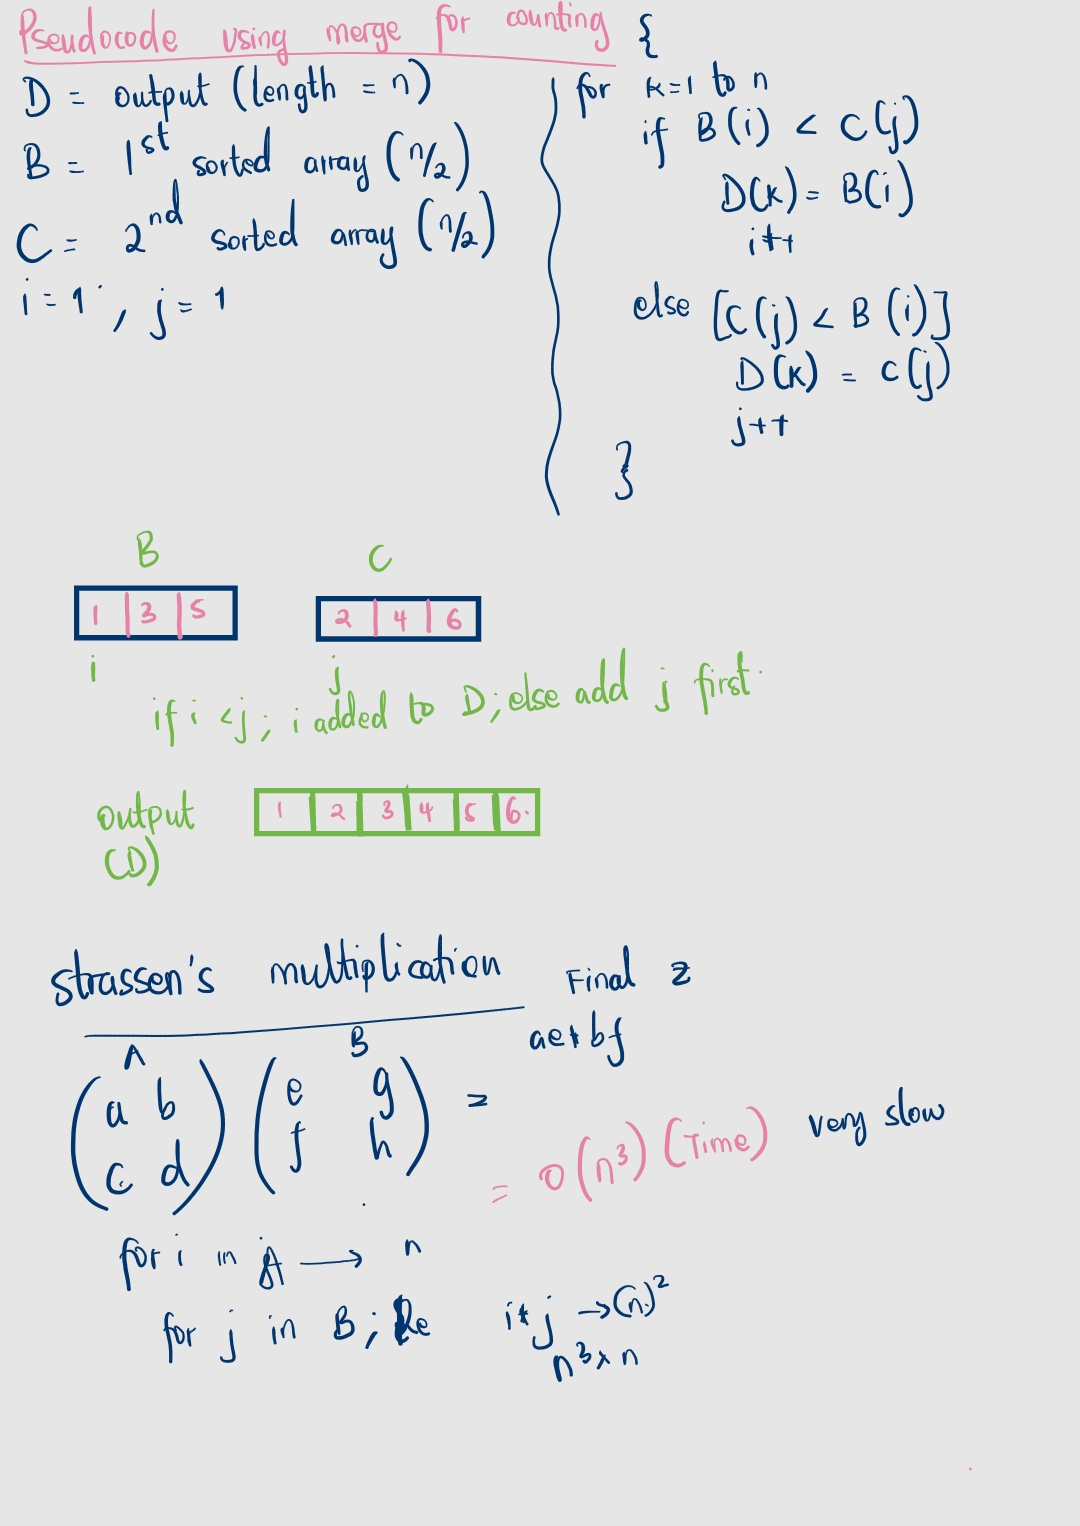 Pseudocode using merge for counting
D = output (length = n)
B = 1st sorted array (n/2)
C = 2nd sorted array (n/2)
i = 1 , j = 1
{
for k=1 to n
if B(i) < C(j)
D(k) = B(i)
i++
else [C(j) < B(i)]
D(k) = C(j)
j++
}
B
1 3 5
i
C
2 4 6
j
if i < j ; i added to D ; else add j first.
output
(D)
1 2 3 4 5 6.
Strassen's multiplication
Final z
ae+bf
A B
(a b) (e g) =
(c d) (f h)
= O(n³) (Time) very slow
for i in A → n
for j in B ;
i * j → (n)²
n³ x n